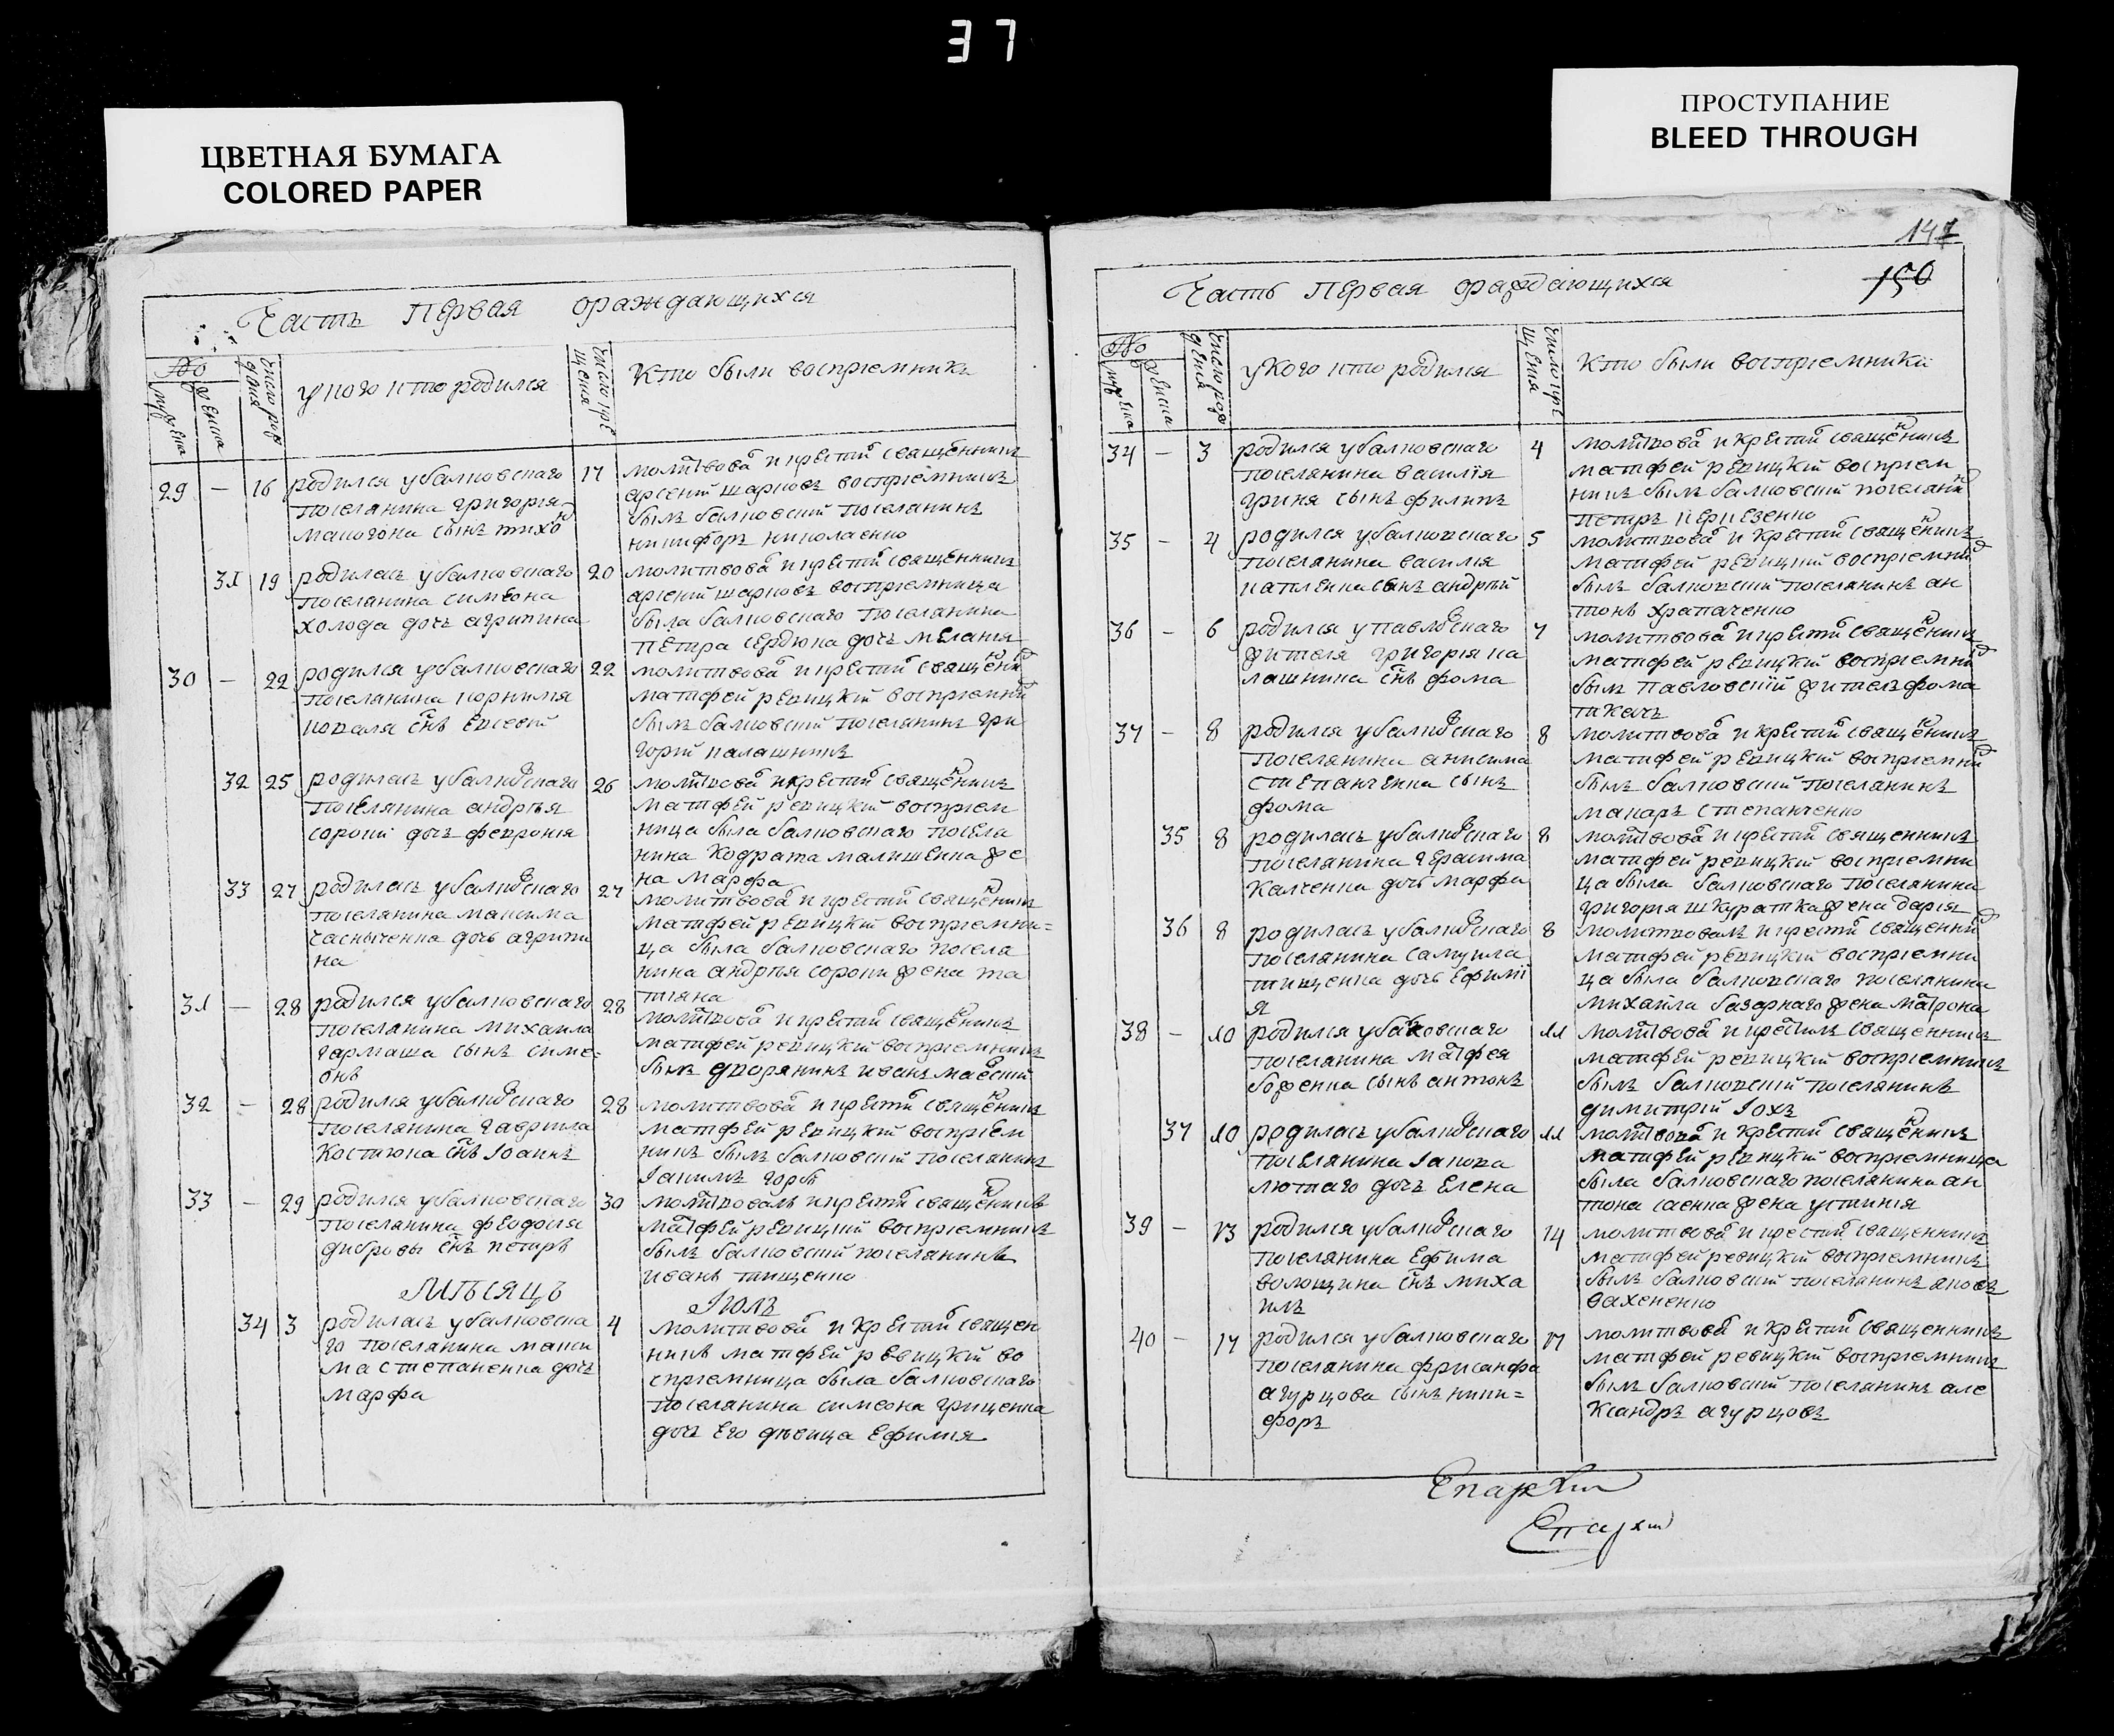 37
ЦВЕТНАЯ БУМАГА
COLORED PAPER
ПРОСТУПАНИЕ
BLEED THROUGH
Часть Первая ораждающихся
№
муж ска
женска
число рождения
у кого кто родился
число крещения
Кто были восприемники
29 — 16 родился у балковскаго 17
поселянина григория
макогона сынъ тихонъ
молитвовал и крестил священникъ
арсений шарковъ восприемникъ
былъ балковский поселянинъ
никифоръ николаенко
31 19 родилась у балковскаго 20
поселянина симеона
холода дочь агрипина
молитвовал и крестил священникъ
арсений шарковъ восприемница
была балковскаго поселянина
петра сердюка дочь мелания
30 — 22 родился у балковскаго 22
поселянина корнилия
коваля снъ евсевий
молитвовал и крестил священник
матфей ревицкий восприемник
былъ балковский поселянинъ гри
горий калашникъ
32 25 родилась у балковскаго 26
поселянина андрѣя
сороки дочь феврония
молитвовал и крестил священникъ
матфей ревицкий восприем
ница была балковскаго посела
нина Кодрата малишенка же
на марфа
33 27 родилась у балковскаго 27
поселянина максима
дочь агрипи
на
молитвовал и крестил священник
матфей ревицкий восприемни=
ца была балковскаго посела
нина андрѣя сороки жена та
тияна
31 — 28 родился у балковскаго 28
поселянина михаила
гармаша сынъ симе=
онъ
молитвовал и крестил священникъ
матфей ревицкий восприемникъ
былъ дворянинъ иванъ маевский
32 — 28 родился у балковскаго 28
поселянина гаврила
Костюка снъ Iоаннъ
молитвовал и крестил священникъ
матфей ревицкий восприем
никъ былъ балковский поселянинъ
Iакимъ горбъ
33 — 29 родился у балковскаго 30
поселянина феодосия
дибровы снъ петръ
молитвовалъ и крестил священникъ
матфей ревицкий восприемникъ
былъ балковский поселянинъ
иванъ тищенко
Мѣсяцъ Iюль
34 3 родилась у балковска 4
го поселянина макси
ма степаненка дочь
марфа
молитвовал и крестил священ
никъ матфей ревицкий во
сприемница была балковскаго
поселянина симеона грищенка
дочь его дѣвица ефимия
147
150
Часть Первая ораждающихся
№
муж ска
женска
число рождения
у Кого кто родился
число крещения
Кто были восприемники
34 — 3 родился у балковскаго 4
поселянина василия
гриня сынъ филипъ
молитвовал и крестил священникъ
матфей ревицкий восприем
никъ былъ балковский поселянин
петръ
35 — 4 родился у балковскаго 5
поселянина василия
сынъ андрѣй
молитвовал и крестил священникъ
матфей ревицкий восприемник
былъ балковский поселянинъ ан
тонъ храпаченко
36 — 6 родился у павловскаго 7
жителя григория ка
лашника снъ фома
молитвовал и крестил священникъ
матфей ревицкий восприемник
былъ павловский житель фома
ткачъ
37 — 8 родился у балковскаго 8
поселянина анисима
степанченка сынъ
фома
молитвовал и крестил священникъ
матфей ревицкий восприемник
былъ балковский поселянинъ
макаръ степанченко
35 8 родилась у балковскаго 8
поселянина герасима
Калченка дочь марфа
молитвовал и крестил священникъ
матфей ревицкий восприемни
ца была балковскаго поселянина
григория шкуратка жена дария
36 8 родилась у балковскаго 8
поселянина самуила
тищенка дочь ефими
я
молитвовалъ и крестил священник
матфей ревицкий восприемни
ца была балковскаго поселянина
михайла базарнаго жена матрона
38 — 10 родился у балковскаго 11
поселянина матфея
боженка сынъ антонъ
молитвовал и крестилъ священникъ
матфей ревицкий восприемникъ
былъ балковский поселянинъ
димитрий
37 10 родилась у балковскаго 11
поселянина Iакова
лютаго дочь елена
молитвовал и крестил священникъ
матфей ревицкий восприемница
была балковскаго поселянина ан
тона саенка жена устиния
39 — 13 родился у балковскаго 14
поселянина ефима
волощина снъ миха
илъ
молитвовал и крестил священникъ
матфей ревицкий восприемникъ
былъ балковский поселянинъ
40 — 17 родился у балковскаго 17
поселянина фрисанфа
агурцова сынъ ники=
форъ
молитвовал и крестил священникъ
матфей ревицкий восприемникъ
былъ балковский поселянинъ але
ксандръ агурцовъ